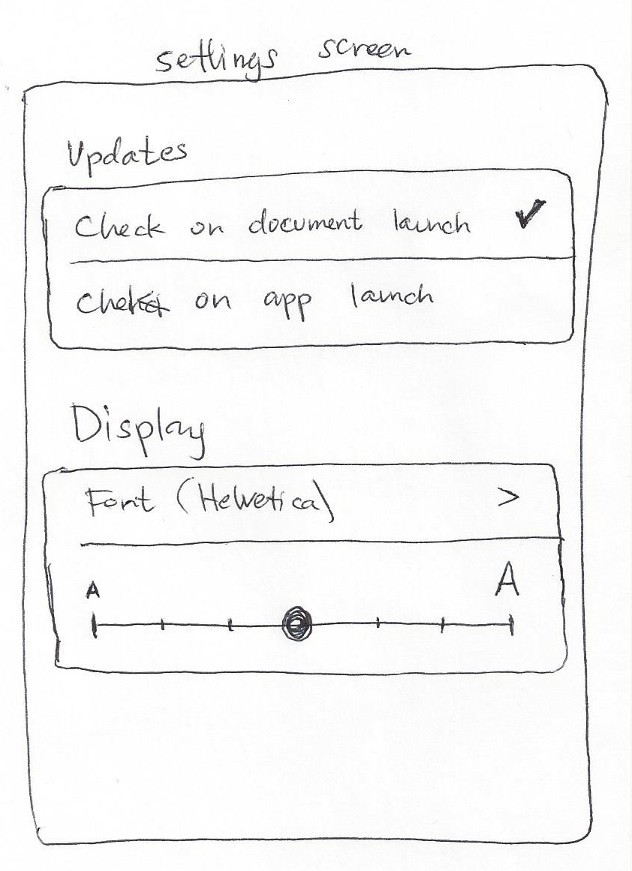 settings screen
Updates
Check on document launch ✓
Check on app launch
Display
Font (Helvetica) >
A A